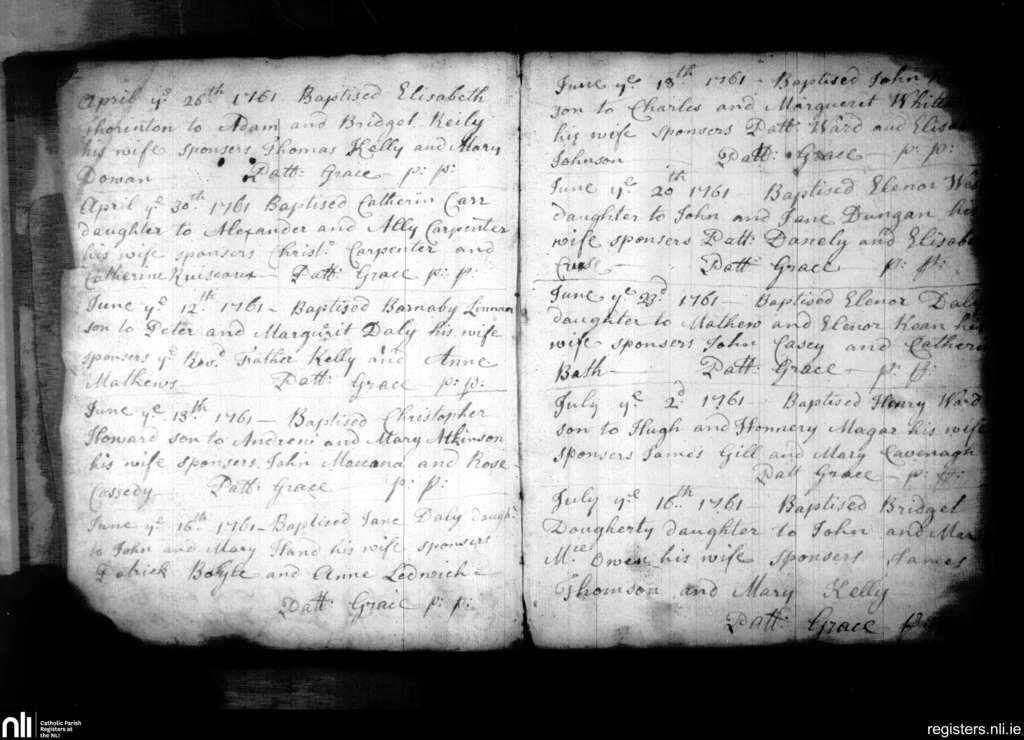 April ye 26th 1761 Baptised Elisabeth
Thorenton to Adam and Bridget Reily
his wife sponsers Thomas Kelly and Mary
Dowan Patt: Grace p: p:
April ye 30th 1761 Baptised Catherin Carr
daughter to Alexander and Ally Carpenter
his wife sponsers Christr Carpenter and
Catherine Ruiseaux Patt: Grace p: p:
June ye 12th 1761 - Baptised Barnaby Linnan
son to Peter and Margurit Daly his wife
sponsers ye Revd Father Kelly and Anne
Mathews - Patt: Grace p: p:
June ye 13th 1761 - Baptised Christopher
Howard son to Andrew and Mary Atkinson
his wife sponsers John Maccana and Rose
Cassedy - Patt: Grace p: p:
June ye 16th 1761 - Baptised Jane Daly daugh:
to John and Mary Hand his wife sponsers
Patrick Boyle and Anne Ledwich -
Patt: Grace p: p:
June ye 18th 1761 - Baptised John
son to Charles and Margueret White
his wife sponsers Patt: Ward and Elisa
Johnson Patt: Grace - p: p:
June ye 20th 1761 Baptised Elenor
daughter to John and Jane Dungan his
wife sponsers Patt: Danely and Elisab
Cruse - Patt: Grace p: p:
June ye 23d 1761 - Baptised Elenor Daly
daughter to Mathew and Elenor Kean his
wife sponsers John Casey and Catheri
Bath - Patt: Grace - p: p:
July ye 2d 1761 - Baptised Henry Ward
son to Hugh and Honnery Magar his wife
sponsers James Gill and Mary Cavenagh
Patt Grace - p: p:
July ye 16th 1761 - Baptised Bridget
Dougherty daughter to John and Mar
Mcc Owen his wife sponsers James
Thomson and Mary Kelly
Patt: Grace p:
nli Catholic Parish
Registers at
the NLI
registers.nli.ie